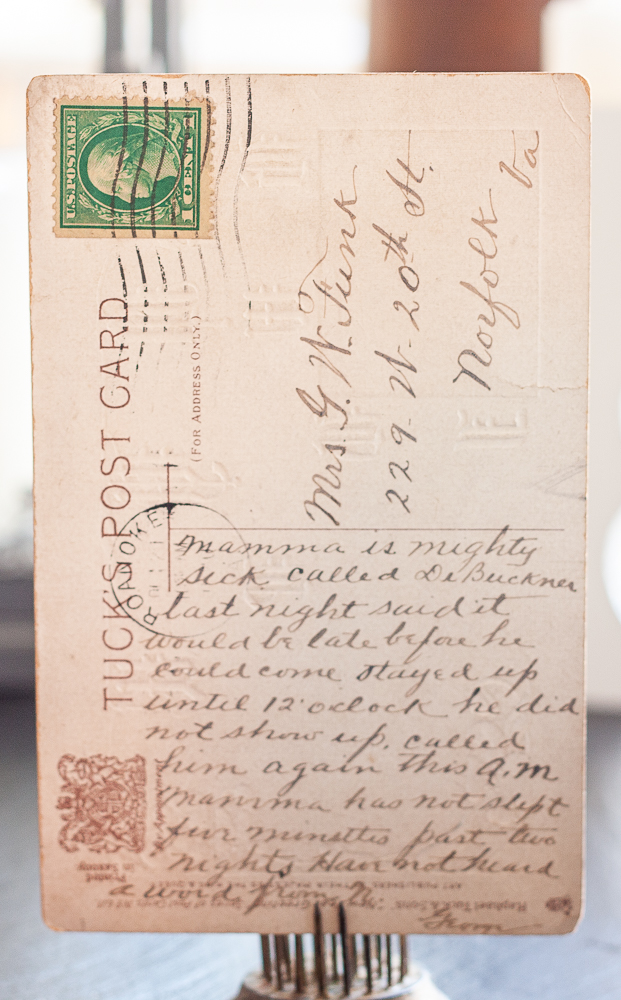 U.S. POSTAGE
1 CENT 1
TUCK'S POST CARD
(FOR ADDRESS ONLY.)
ROANOKE
Mrs. G. W. Funk
229. W. 20th St.
Norfolk Va
Mamma is mighty
sick called Dr Buckner
last night said it
would be late before he
could come stayed up
until 12 oclock he did
not show up. called
him again this A.M
Mamma has not slept
five minettes past two
nights Hav not heard
a word from
From
By Appointment
Printed
in Saxony
Raphael Tuck & Sons'
ART PUBLISHERS